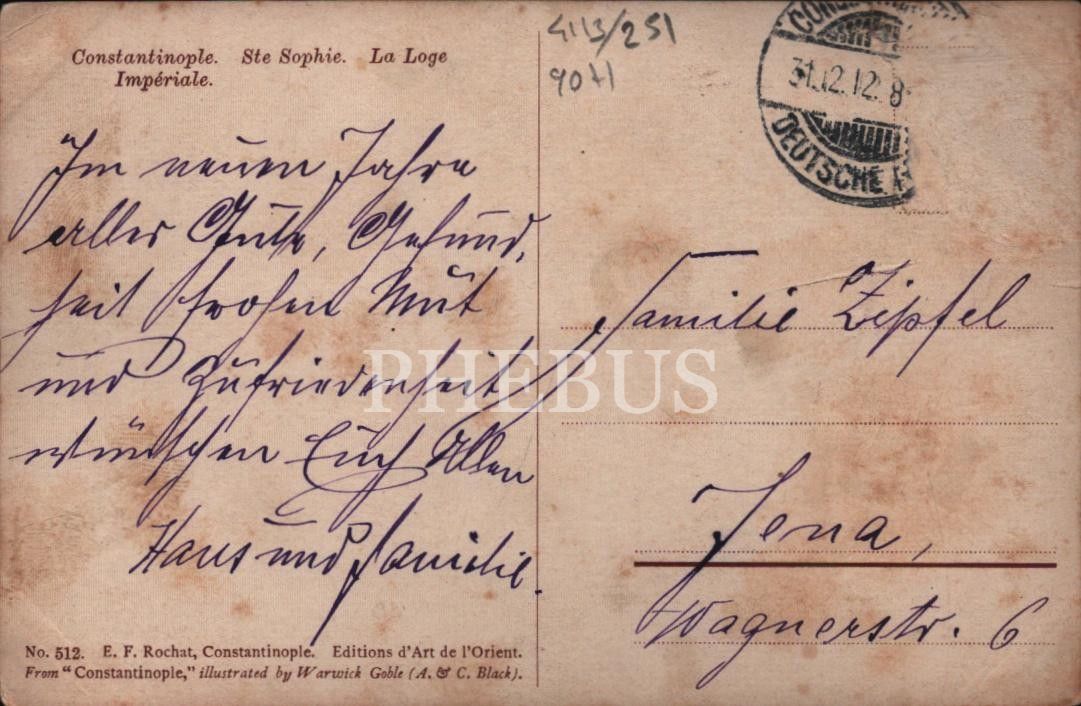 Constantinople. Ste Sophie. La Loge
Impériale.
4113/251
9071
31.12.12. 8
DEUTSCHE
Im neuen Jahre
alles Gute, Gesund-
heit frohen Mut
und Zufriedenheit
wünschen Euch Allen
Hans und Familie.
Familie Zipfel
Jena,
Wagnerstr. 6
PHEBUS
No. 512. E. F. Rochat, Constantinople. Editions d'Art de l'Orient.
From "Constantinople," illustrated by Warwick Goble (A. & C. Black).